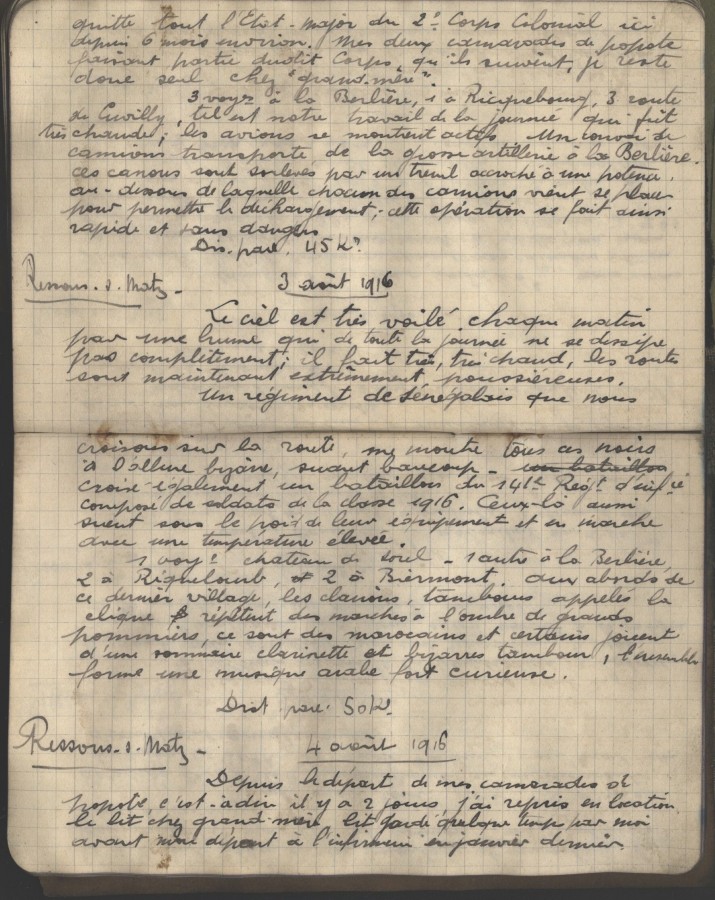 quitte tout l'Etat-major du 2e Corps Colonial ici
depuis 6 mois environ. Mes deux camarades de popote
faisant partie dudit Corps, qu'ils suivent, je reste
donc seul chez "grand-mère".
3 voyes à la Berlière, 1 à Ricquebourg, 3 route
de Cuvilly, tel est notre travail de la journée qui fut
très chaude; les avions se montrent actifs. Un convoi de
camions transporte de la grosse artillerie à la Berlière.
ces canons sont soulevés par un treuil accroché à une potence
au-dessous de laquelle chacun des camions vient se placer
pour permettre le déchargement; cette opération se fait ainsi
rapide et sans dangers
Dis. parc. 45 Km
Ressons-s-Matz - 3 août 1916
Le ciel est très voilé chaque matin
par une brume qui de toute la journée ne se dissipe
pas complètement; il fait très, très chaud, les routes
sont maintenant extrêmement poussiéreuses.
Un régiment de Sénégalais que nous
croisons sur la route, me montre tous ces noirs
à l'allure bizarre, suant beaucoup - un bataillon
croisé également un bataillon du 141e Régt d'inf ie
composé de soldats de la classe 1916. Ceux-là aussi
suent sous le poid de leur équipement et en marche
avec une température élevée.
1 voye château de Sorel - 1 autre à la Berlière,
2 à Riquebourg, et 2 à Biermont. Aux abords de
ce dernier village, les clairons, tambours appelés la
clique répètent des marches à l'ombre de grands
pommiers, ce sont des marocains et certains jouent
d'une sommaire clarinette et bizarres tambour, l'ensemble
forme une musique arabe fort curieuse.
Dist parc. 50 Km
Ressons-s-Matz - 4 août 1916
Depuis le départ de mes camarades de
popote, c'est-à-dire il y a 2 jours, j'ai repris en location
le lit chez grand-mère, lit gardé quelque temps par moi
avant mon départ à l'infirmerie en janvier dernier.